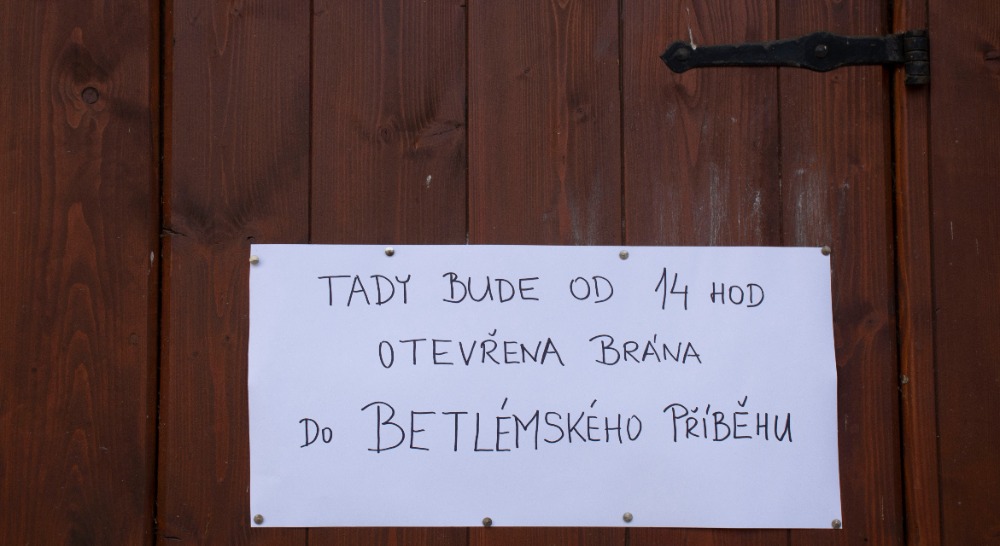 TADY BUDE OD 14 HOD
OTEVŘENA BRÁNA
DO BETLÉMSKÉHO PŘÍBĚHU